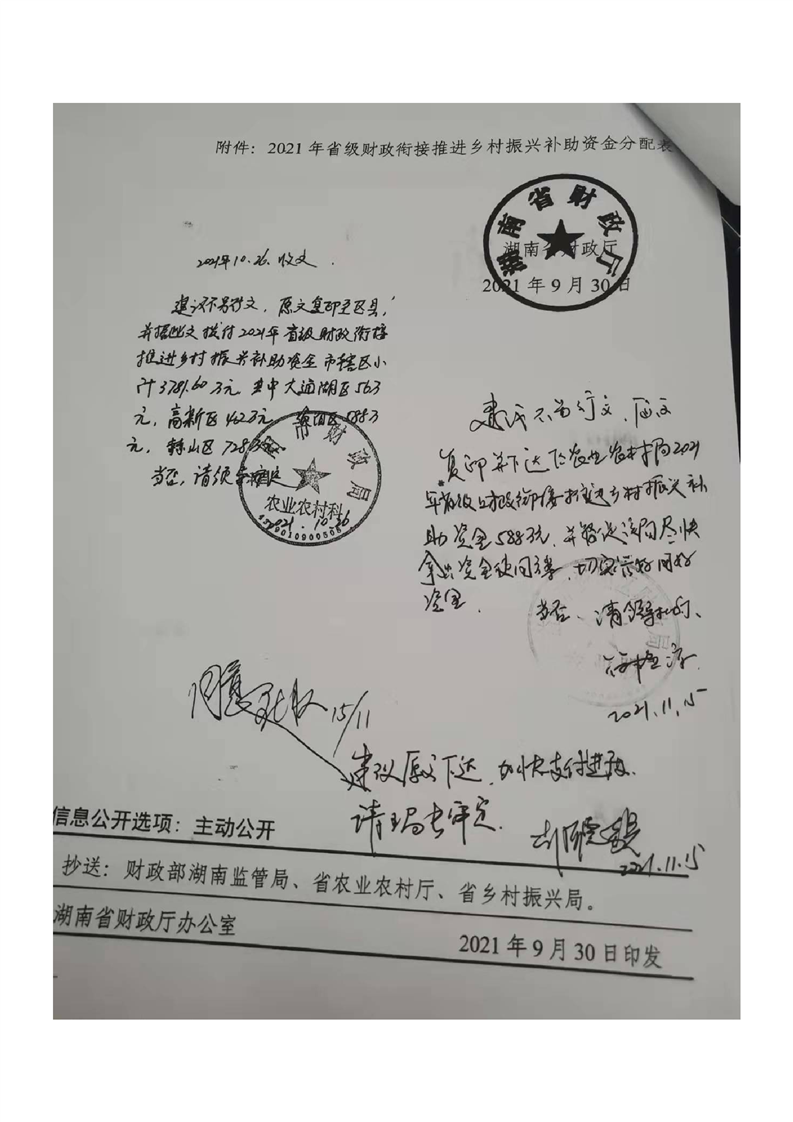 附件：2021年省级财政衔接推进乡村振兴补助资金分配表
湖南省财政厅
湖南省财政厅
2021年9月30日
2021年10.26.收文.
建议不另行文，原文复印至区县，
并据此文拨付2021年省级财政衔接
推进乡村振兴补助资金市辖区小
计3781.60万元，其中大通湖区563
元，高新区462万元，588万
元，赫山区728万元
当否，请领导
市财政局
农业农村科
2021.10.26
建议不另行文，原文
复印并下达区农业农村局2021
年省级财政衔接推进乡村振兴补
助资金588万元，并督促该局尽快
拿出资金使用方案，切实管好用好
资金.
当否、请领导批示、
2021.11.15
同意 15/11
建议原文下达，加快支付进度.
请王局长审定.
2021.11.15
信息公开选项：主动公开
抄送：财政部湖南监管局、省农业农村厅、省乡村振兴局。
湖南省财政厅办公室
2021年9月30日印发